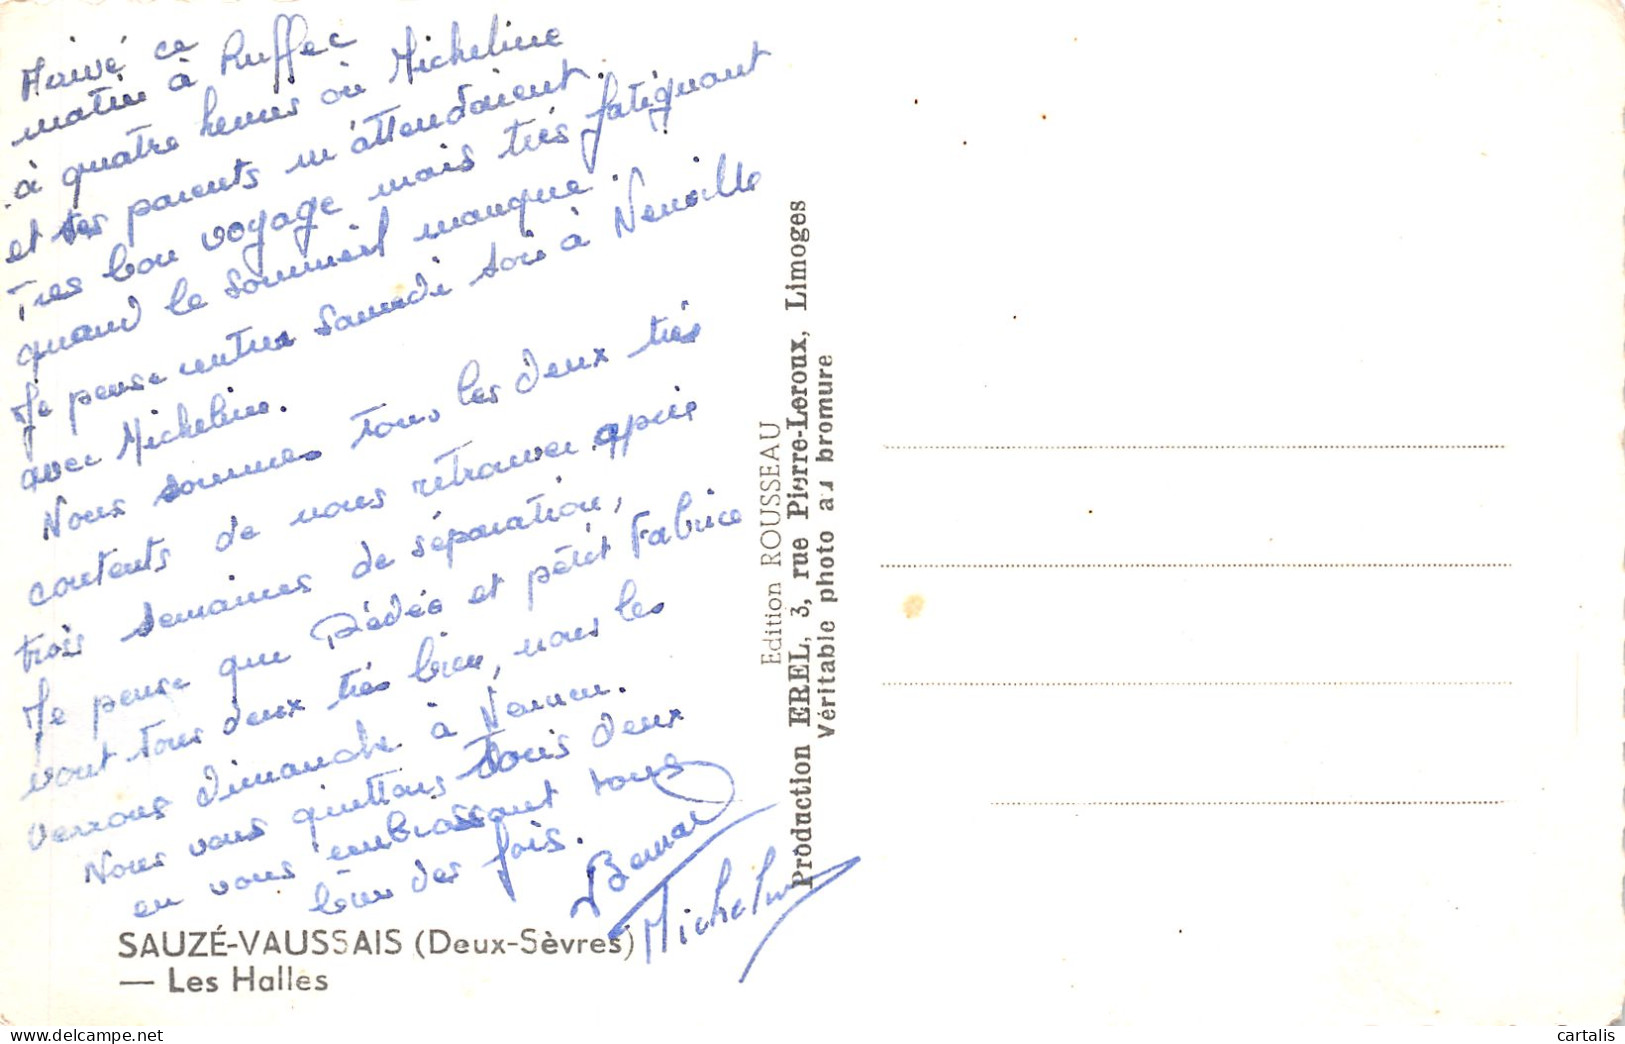 Arrivé ce
matin à Ruffec
à quatre heures où Micheline
et ses parents m'attendaient.
Très bon voyage mais très fatiguant
quand le sommeil manque.
Je pense rentrer samedi soir à Neuville
avec Micheline.
Nous sommes tous les deux très
contents de nous retrouver après
trois semaines de séparation,
Je pense que Dédée et petit Fabrice
vont tous deux très bien, nous les
verrons dimanche à
Nous vous quittons tous deux
en vous embrassant tous
bien des fois.
Bernard
Micheline
SAUZÉ-VAUSSAIS (Deux-Sèvres)
— Les Halles
Edition ROUSSEAU
Production EREL, 3, rue Pierre-Leroux, Limoges
Véritable photo au bromure
www.delcampe.net
cartalis